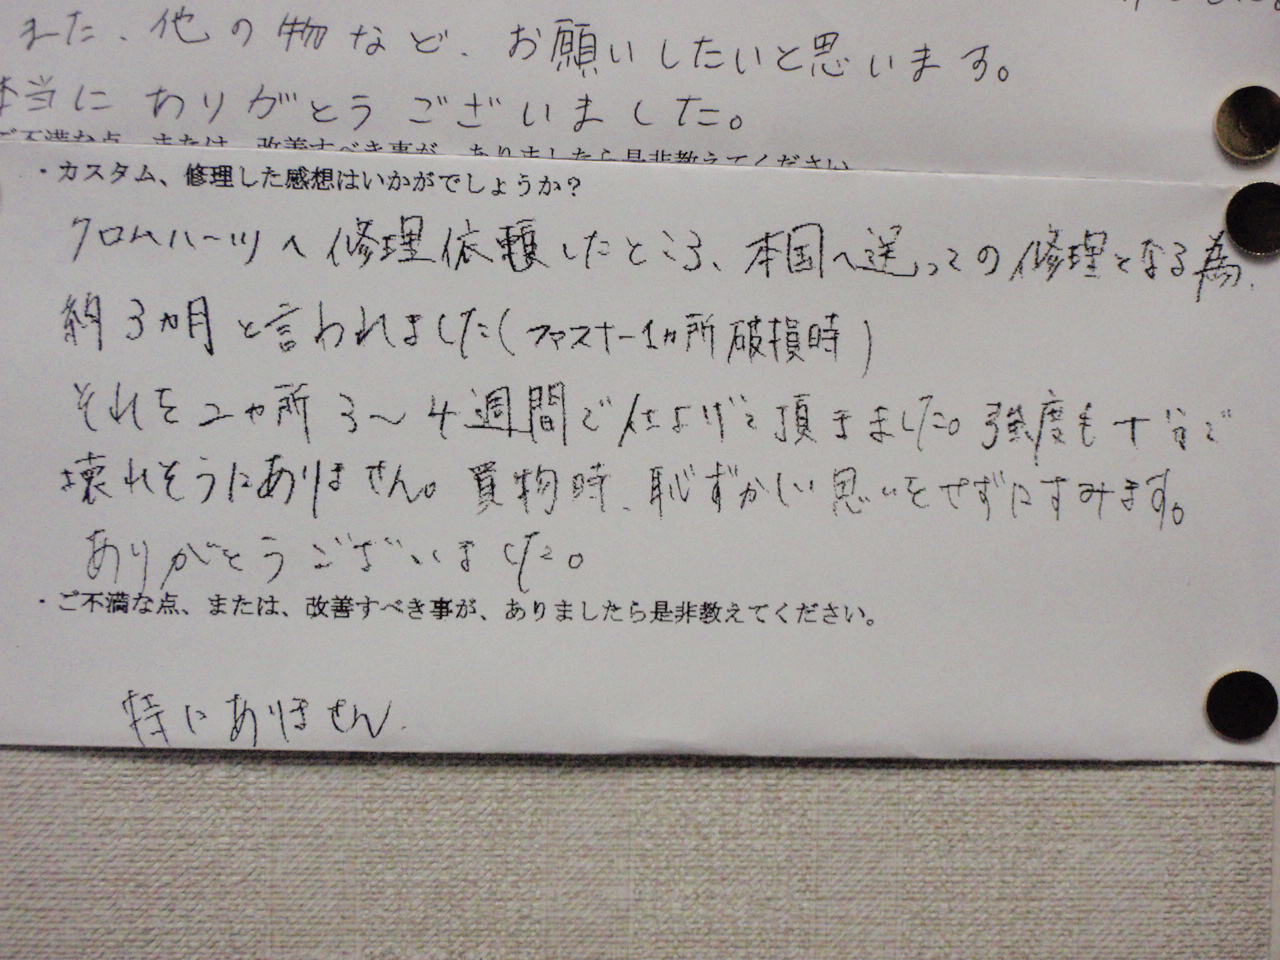 また、他の物など、お願いしたいと思います。
本当にありがとうございました。
ご不満な点、または、改善すべき事が、ありましたら是非教えてください
・カスタム、修理した感想はいかがでしょうか?
クロムハーツへ修理依頼したところ、本国へ送っての修理となる為、
約3カ月と言われました(ファスナー1カ所破損時)
それを2ヵ所3〜4週間で仕上げて頂きました。強度も十分で
壊れそうにありません。買物時、恥ずかしい思いをせずにすみます。
ありがとうございました。
・ご不満な点、または、改善すべき事が、ありましたら是非教えてください。
特にありません.